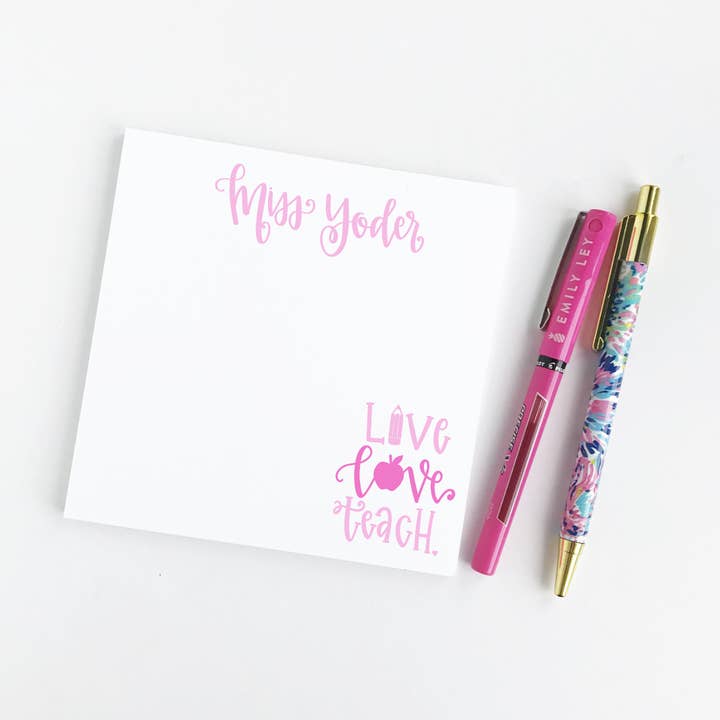 Miss Yoder
Live
love
teach.
EMILY LEY